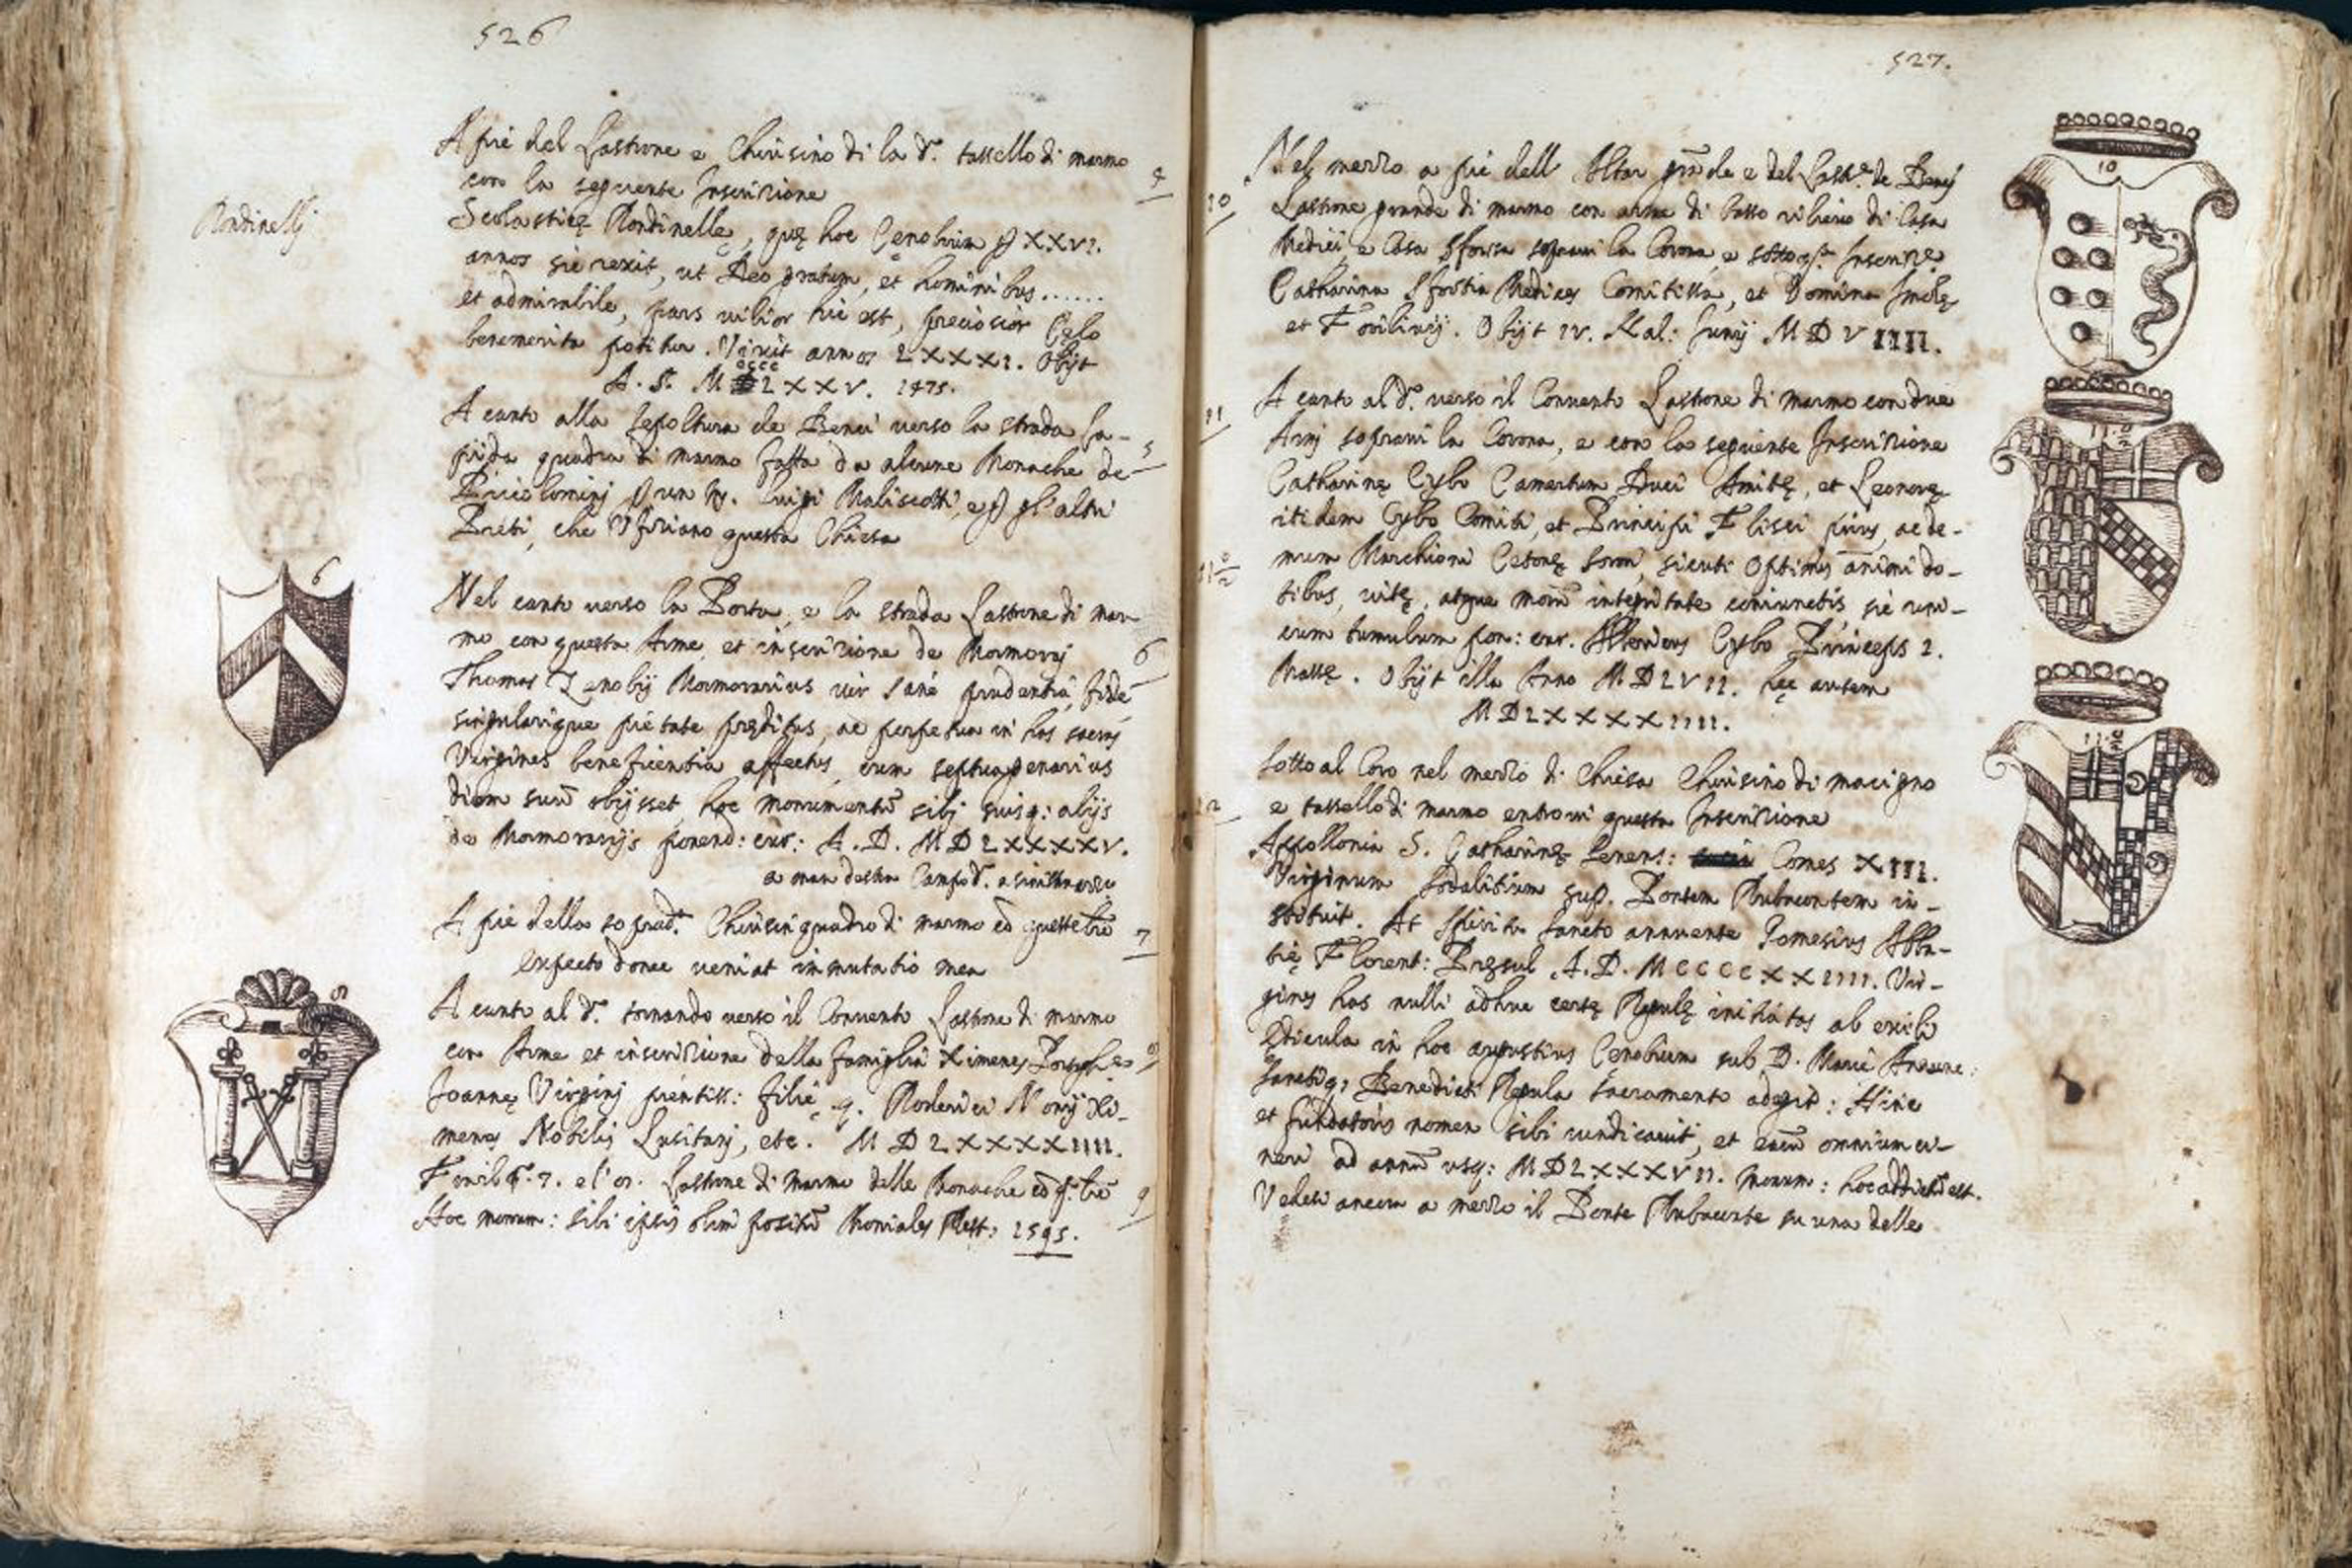 526
Rondinelli
A piè del Lastrone e Chiusino di la d.º tassello di marmo
4
con la seguente Inscrizione
Scolasticę Rondinellę, quę hoc Cęnobium p XXVI.
annos sic rexit, ut Deo gratum, et hominibus ......
et admirabile, pars vilior hic est, preciosior Cęlo
benemerita potitur. Vixit annos LXXXI. Obijt
cccc
A. S. M LXXV. 1475.
A canto alla sepoltura de Benci verso la strada la-
5
pida quadra di marmo fatta da alcune Monache de
Piccolominj p un Luigi Maliscotti, e p gl'altri
Preti, che Ufiziano questa Chiesa
6
Nel canto verso la Porta, e la strada Lastrone di mar
mo con questa Arme, et inscrizione de Mormoraj
6
Thomas Zenobij Mormorarius vir sanè prudentia, fide
singularique pietate pręditus, ac perpetua in has sacras
Virgines beneficentia affectus, cum septuagenarius
diem suũ obijsset, hoc monumentũ sibj suisq: alijs
de Mormorarijs ponend: cur: A. D. MDLXXXXV.
a man destra
A piè della soprad.ª Chiusin quadro di marmo cõ queste lrẽ
7
expecto donec veniat immutatio mea
8
A canto al d.º tornando verso il Convento Lastrone di marmo
con Arme et inscrizione della famiglia Ximenes
8
Joannę Virginj pientiss: filię q. Roderici Nonij Xi-
menes Nobilis Lusitanj, etc. MDLXXXXIIII.
Lastrone di marmo delle Monache cõ q.e lrẽ
9
Hoc monum: sibi ipsis olim positũ Moniales Rest: 1595.
527.
10
Nel mezzo a piè dell Altar grãde e del Last.e de Bencj
10
Lastrone grande di marmo con arme di basso rilievo di Casa
Medici, e Casa Sforza sopravi la Corona, e sotto q.sta Inscriz.e
Catharina Sfortia Medices Comitissa, et Domina Imolę
et Forilivij. Obijt IV. Kal: Junij MDVIIII.
11
A canto al d.º verso il Convento Lastrone di marmo con due
11
Armj sopravi la Corona, e con la seguente Inscrizione
Catharinę Cybo Camertum Duci Amitę, et Leonorę
itidem Cybo Comiti, et Principi Flisci prius, ac de-
mum Marchioni Cetonę Soror, sicuti optimis animi do-
tibus, vitę, atque morũ integritate coniunctis, sic uni-
cum tumulum pon: cur. Albericus Cybo Princeps I.
Massę. Obijt illa Anno MDLVII. hęc autem
MDLXXXXIIII.
Sotto al Coro nel mezzo di Chiesa Chiusino di macigno
12
e tassello di marmo entrovi questa Inscrizione
Appollonia S. Catharinę Senens: Comes XIII.
Virginum Sodalitium sup. Pontem Rubacontem in-
stituit. At Spiritu Sancto annuente Gomesius Abba-
tię Florent: Pręsul A.D. MCCCCXXIIII. Vir-
gines has nulli adhuc certę Regulę initiatas ab exili
ędicula in hoc augustius Cęnobium sub D. Marię Annunc:
Sanctiq; Benedicti Regula Sacramento adegit: Hinc
et fundatoris nomen sibi vindicavit, et omnium ci-
neri ad annũ usq: MDLXXXVII. monum: hoc est.
Vedesi ancora a mezzo il Ponte Rubaconte su una delle